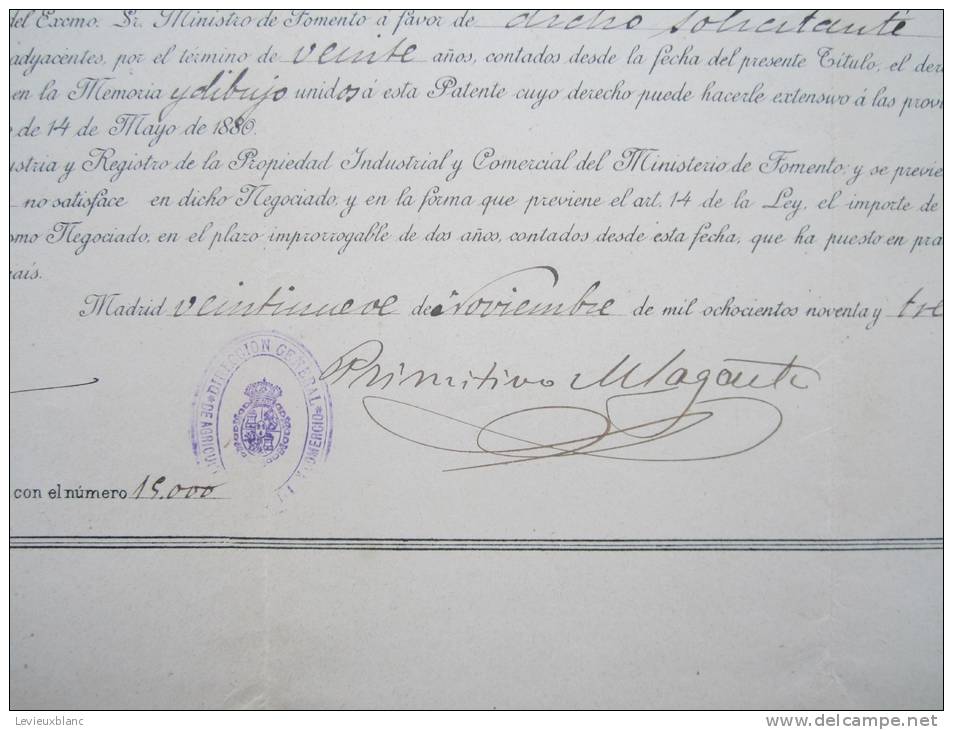 del Excmo. Sr. Ministro de Fomento á favor de dicho solicitante
adyacentes, por el término de veinte años, contados desde la fecha del presente Título, el der
en la Memoria y dibujo unidos á esta Patente cuyo derecho puede hacerle extensivo á las provi
de 14 de Mayo de 1880.
ustria y Registro de la Propiedad Industrial y Comercial del Ministerio de Fomento; y se previe
no satisface en dicho Negociado, y en la forma que previene el art. 14 de la Ley, el importe de
omo Negociado, en el plazo improrrogable de dos años, contados desde esta fecha, que ha puesto en pra
país.
Madrid veintinueve de Noviembre de mil ochocientos noventa y tre
Primitivo
DIRECCION GENERAL
DE AGRICUL
COMERCIO
con el número 15.000
Levieuxblanc
www.delcampe.net